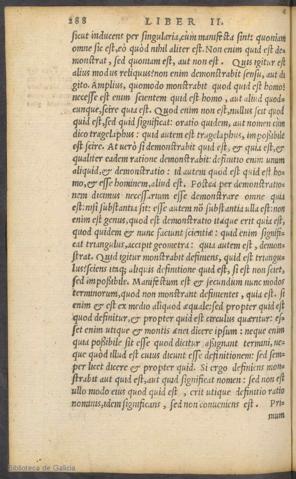 288 LIBER II.
sicut inducens per singularia, cùm manifesta sint: quoniam
omne sic est, eò quòd nihil aliter est. Non enim quid est de-
monstrat, sed quoniam est, aut non est. Quis igitur est
alius modus reliquus? non enim demonstrabit sensu, aut di
gito. Amplius, quomodo monstrabit quod quid est homo?
necesse est enim scientem quid est homo, aut aliud quod-
cunque, scire quia est. Quod enim non est, nullus scit quod
quid est, sed quid significat: oratio quidem, aut nomen cùm
dico tragelaphus: quid autem est tragelaphus, impossibile
est scire. At uerò si demonstrabit quid est, & quia est, &
qualiter eadem ratione demonstrabit? definitio enim unum
aliquid, & demonstratio: id autem quod est quid est ho-
mo, & esse hominem, aliud est. Postea per demonstratio-
nem dicimus necessarium esse demonstrare omne quia
est: nisi substantia sit: esse autem nō substantia ulla est: non
enim est genus, quod est: demonstratio itaque erit quia est,
quod quidem & nunc faciunt scientiæ: quid enim signifi-
cat triangulus, accipit geometra: quia autem est, demon-
strat. Quid igitur monstrabit definiens, quid est triangu-
lus? sciens itaq; aliquis definitione quid est, si est non sciet,
sed impossibile. Manifestum est & secundum nunc modos
terminorum, quod non monstrant definientes, quia est. si
enim & est ex medio aliquod æquale: sed propter quid est
quod definitur, & propter quid est circulus quæritur: es-
set enim utique & montis ænei dicere ipsum: neque enim
quia possibile sit esse quod dicitur assignant termini, ne-
que quòd illud est cuius dicunt esse definitionem: sed sem-
per licet dicere & propter quid. Si ergo definiens mon-
strabit aut quid est, aut quid significat nomen: sed non est
ullo modo eius quod quid est, erit utique definitio ratio
nominis, idem significans, sed non conueniens est. Pri-
mum
Biblioteca de Galicia